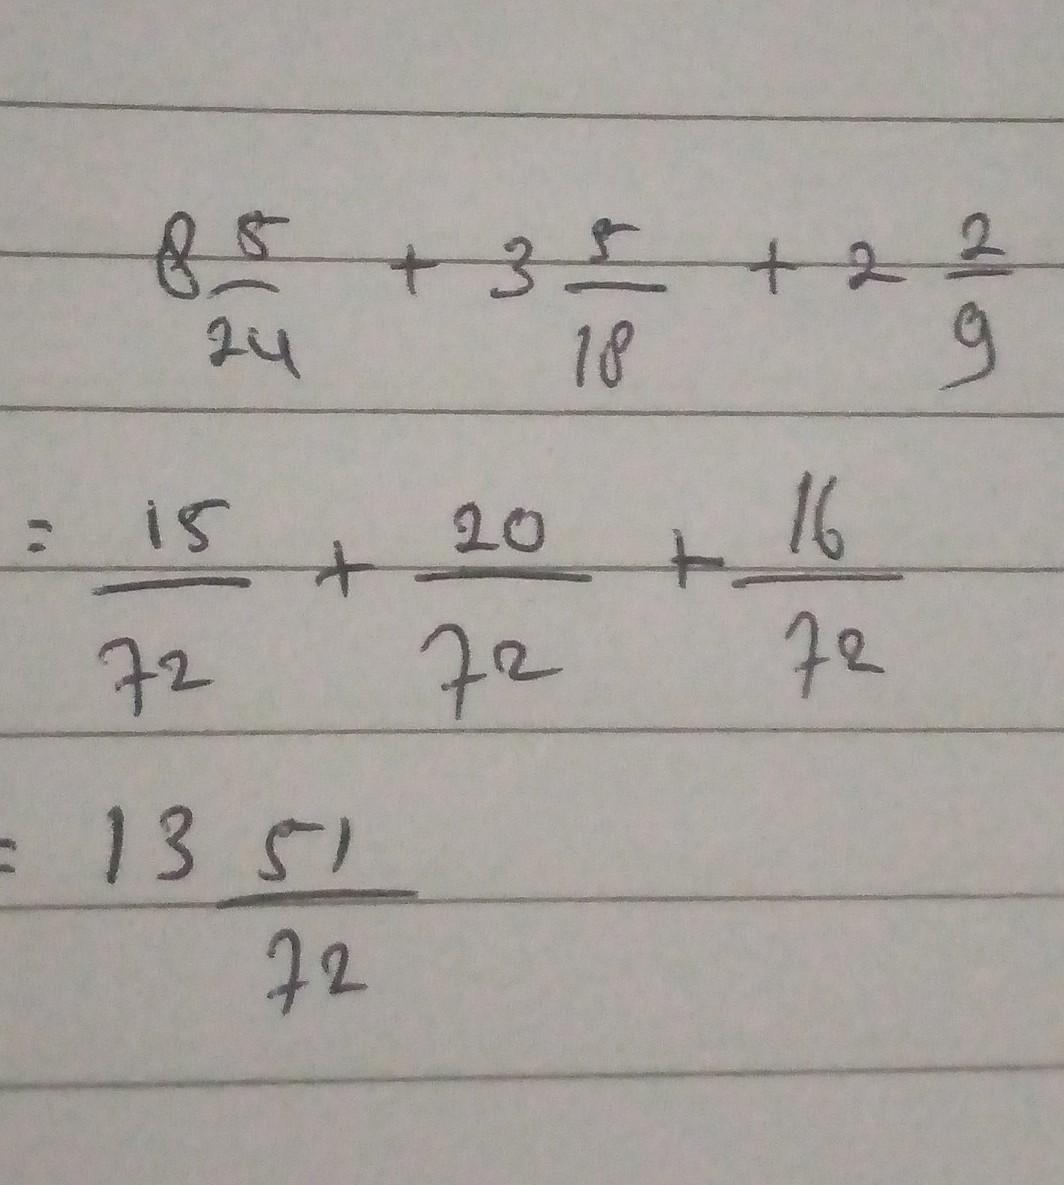 8 5/24 + 3 5/18 + 2 2/9
= 15/72 + 20/72 + 16/72
= 13 51/72